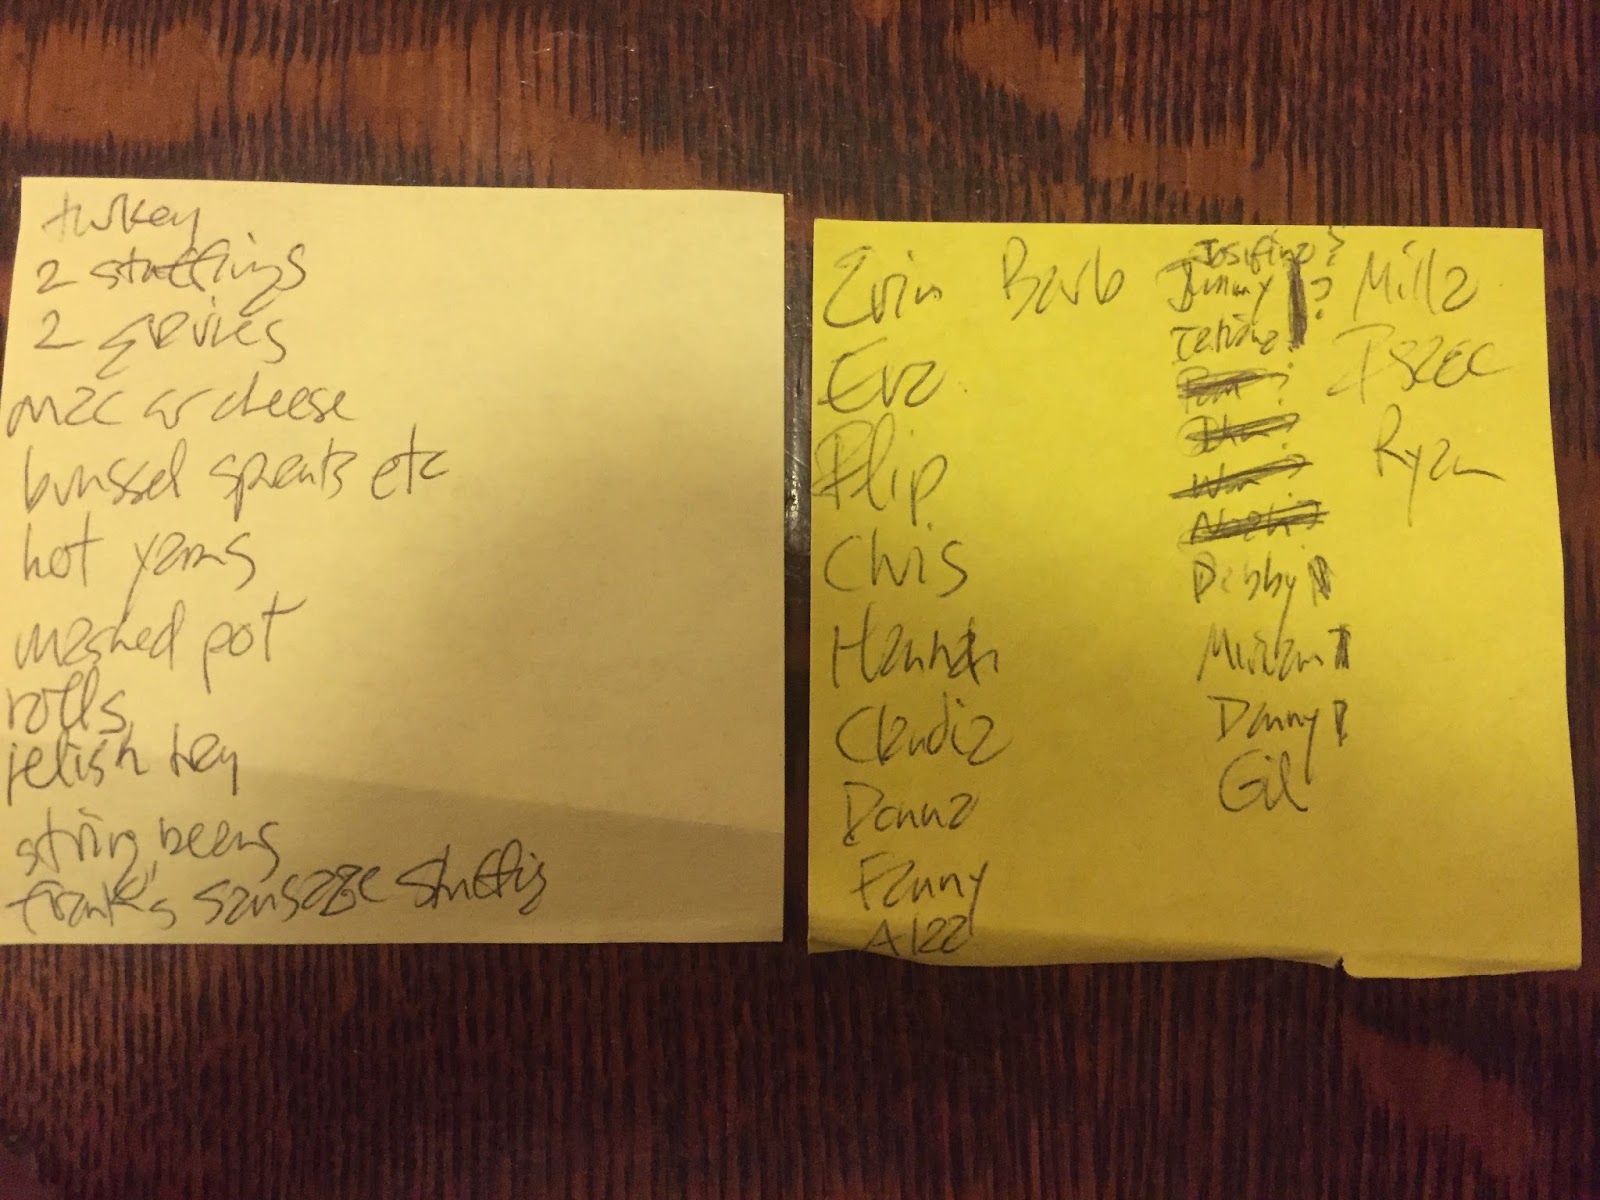 turkey
2 stuffings
2 gravies
mac w cheese
brussel sprouts etc
hot yams
mashed pot
rolls
relish tray
string beans
frank's sausage stuffing
Erin
Eva
Flip
Chris
Hannah
Claudia
Donna
Fanny
Barb
Josifina?
Jimmy ?
Tatiana
Debby
Miriam
Danny
Gil
Milla
Isaac
Ryan